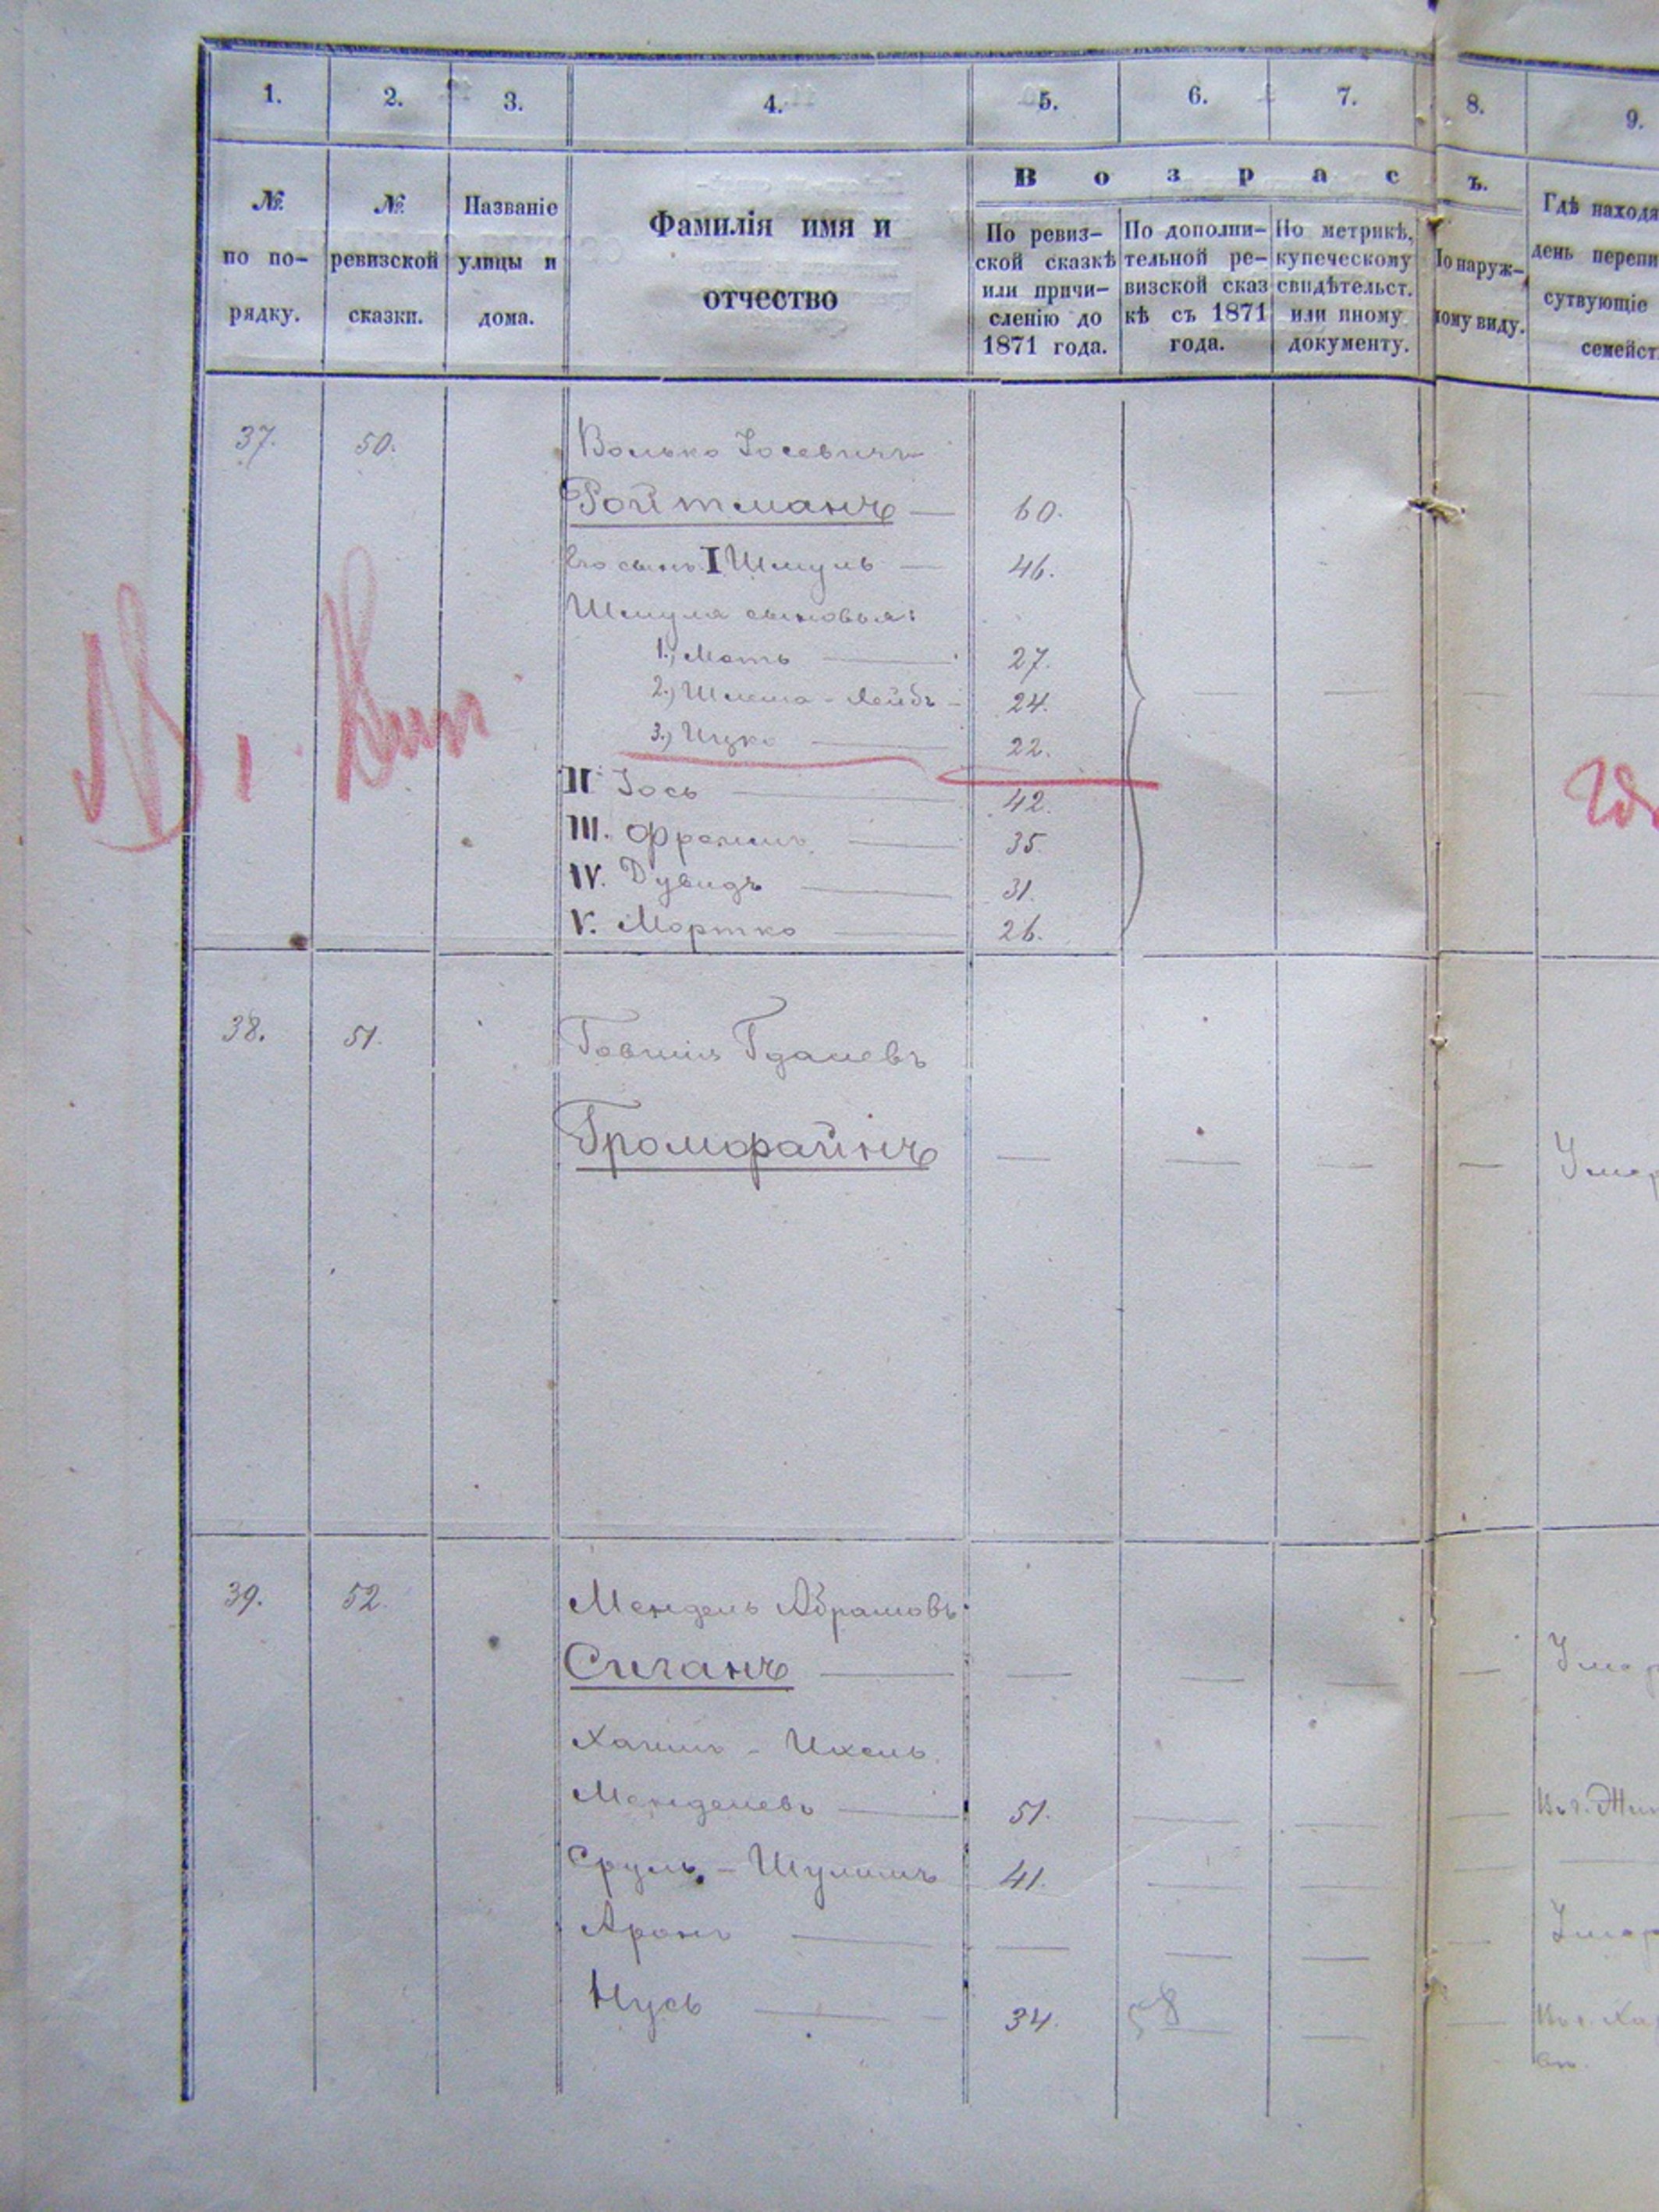 1. 2. 3. 4. 5. 6. 7. 8. 9.
В о з р а с ъ.
№ по по- рядку.
№ ревизской сказки.
Названіе улицы и дома.
Фамилія имя и отчество
По ревиз- ской сказкѣ или причи- сленію до 1871 года.
По дополни- тельной ре- визской сказ кѣ съ 1871 года.
По метрикѣ, купеческому свидѣтельст. или иному документу.
По наруж- ному виду.
Гдѣ находя
день перепи
сутвующіе
семейст
37. 50. Волько Іосевичъ
Ройтманъ — 60.
Его сынъ I Шмуль — 46.
Шмуля сыновья:
1., Мот — 27.
2., Шлема-Лейбъ — 24.
3., Ицко — 22.
II Іось — 42.
III. Фроимъ — 35.
IV. Дувидъ — 31.
V. Мортко — 26.
38. 51. Говшія Гдалевъ
Громфайнъ — — — — Умер
39. 52. Мендель Абрамовъ
Сиганъ — — — — — Умер
Хаимъ - Ихель
Менделевъ — 51. — — —
Сруль - Шулимъ 41. — — —
Аронъ — — — — — Умер
Нусь — 34. 58 — —